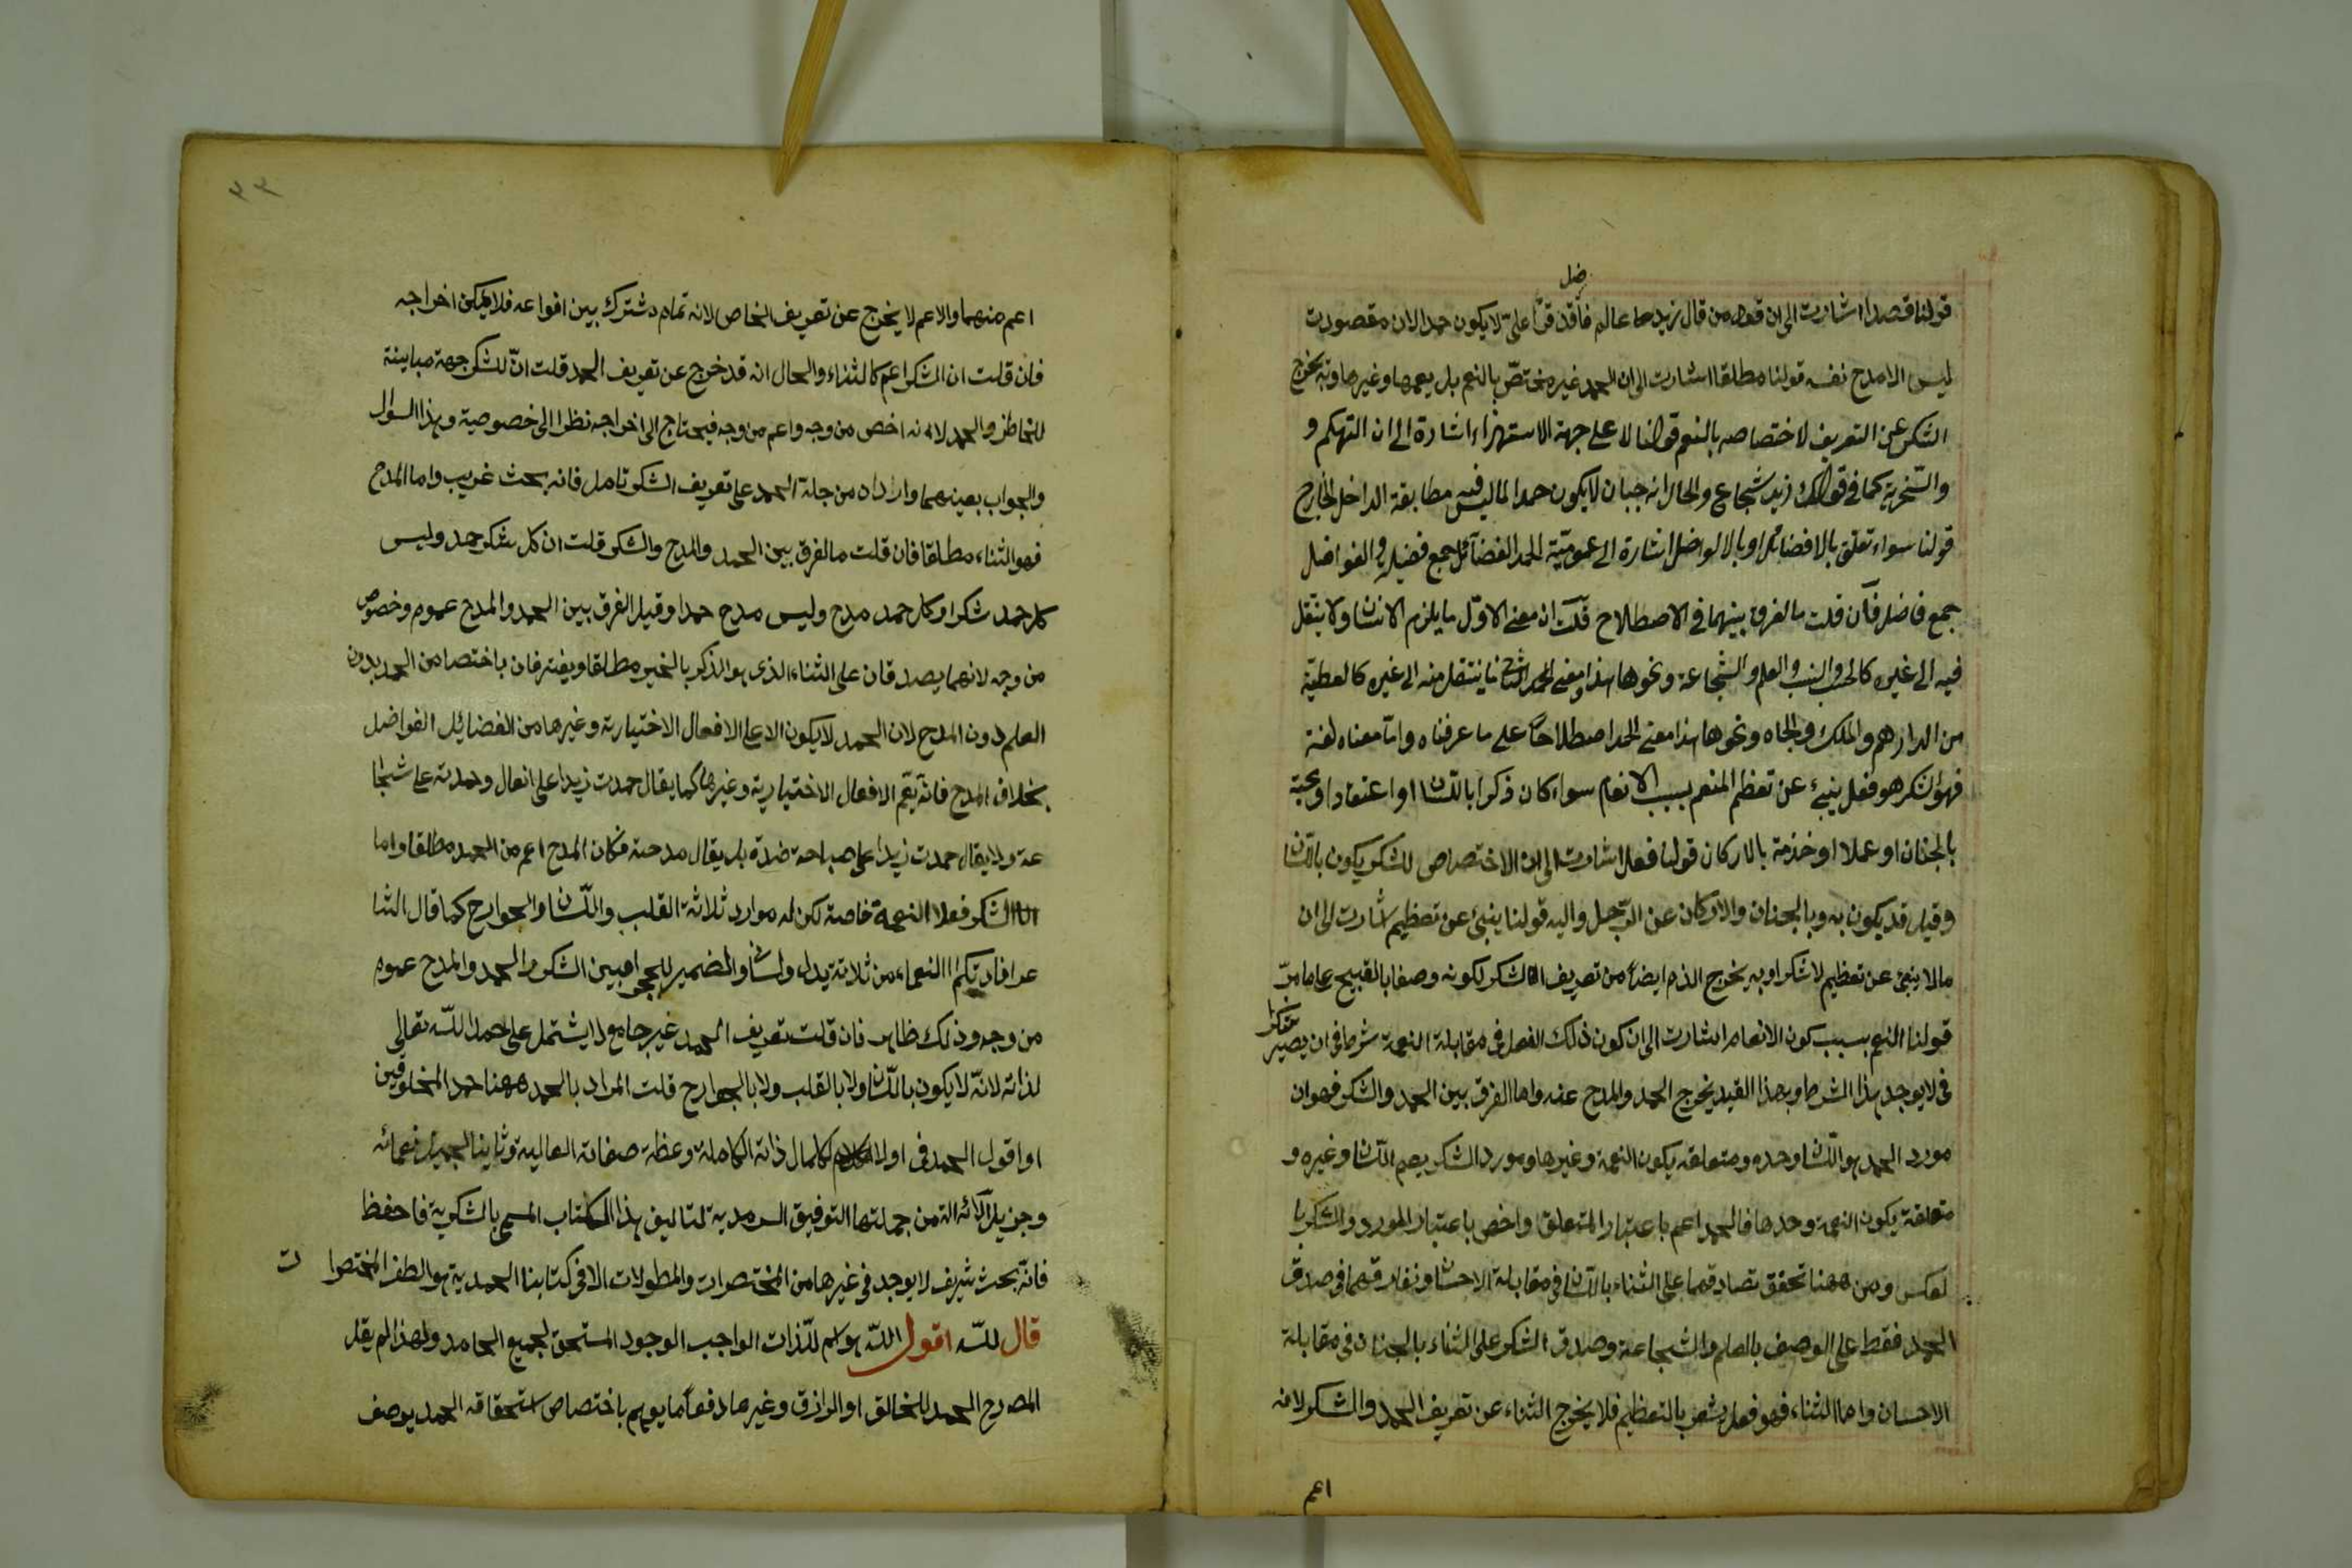 قولنا قصدا اشارت الى ان قول من قال زيد ما عالم فاضل قد قرأ على لا يكون حمدا لان مقصودت
ليس الا مدح نفسه قولنا مطلقا اشارت الى ان الحمد غير مختصّ بالنعم بل يعمها وغيرها وبه يخرج
الشكر عن التعريف لاختصاصه بالنعم قولنا لا على جهة الاستهزاء اشارة الى ان التهكم و
والسّخرية كما فى قولك زيد شجاع والحال انه جبان لا يكون حمدا لما ليس فيه مطابقة الداخل الخارج
قولنا سواء تعلق بالافضائل او بالالواضل اشارة الى عموميّة الحمد الفضائل جمع فضيلة والفواضل
جمع فاضل فان قلت ما الفرق بينهما فى الاصطلاح قلت ان معنى الاوّل ما يلزم الانسان ولا ينتقل
فيه الى غيره كالحسب والنسب والعلم والشجاعة ونحوها هذا ومعنى الثانى ما ينتقل منه الى غيره كالعطيّة
من الدارهم والملك والجاه ونحوها هذا معنى الحمد اصطلاحًا على ما عرفناه وامّا معناه لغة
فهو الشكر هو فعل ينبئ عن تعظم المنعم بسبب الانعام سواء كان ذكرا باللّسان او اعتقادا ومحبّة
بالجنان او عملا او خذمة بالاركان قولنا فعل اشارت الى ان الاختصاص للشكر يكون باللّسان
وقيل قد يكون به وبالجنان والاركان عن الرّجل واليه قولنا ينبئ عن تعظيم اشارت الى ان
مالا ينبئ عن تعظيم لا شكرا وبه يخرج الذم ايضاً من تعريف الشكر لكونه وصفا بالقبيح على ما مرّ
قولنا النعم بسبب كون الانعام اشارت الى ان كون ذلك الفعل فى مقابلة النعمة شرط فى ان يصير شكرا
فى لا يوجد هذا الشرط وبهذا القيد يخرج الحمد والمدح عنه واما الفرق بين الحمد والشكر فهو ان
مورد الحمد هو اللّسان وحده ومتعلقه يكون النعمة وغيرها ومورد الشكر يعم اللّسان وغيره و
متعلقة يكون النعمة وحدها فالحمد اعم باعتبار المتعلق واخص باعتبار المورد والشكر با
لعكس ومن ههنا تحقق تصادقهما على الثناء باللّسان فى مقابلة الاحسان وتفارقهما فى صدق
الحمد فقط على الوصف بالعلم والشجاعة وصدق الشكر على الثناء بالجنان فى مقابلة
الاحسان واما الثناء فهو فعل يشعر بالتعظيم فلا يخرج الثناء عن تعريف الحمد والشكر لانه
اعم
٣٣
اعم منهما والاعم لا يخرج عن تعريف الخاص لانه تمام مشترك بين انواعه فلا يمكن اخراجه
فان قلت ان الشكر اعم كالثناء والحال انه قد خرج عن تعريف الحمد قلت انّ للشكر جهة مباينة
والحمد لانه اخص من وجه واعم من وجه فيحتاج الى اخراجه نظرا الى خصوصية وهذا السؤال
والجواب بعينهما واراد من جلة الحمد على تعريف الشكر تامل فانه بحث غريب واما المدح
فهو الثناء مطلقا فان قلت ما الفرق بين الحمد والمدح والشكر قلت ان كل شكر حمد وليس
كل حمد شكرا وكل حمد مدح وليس مدح حمدا وقيل الفرق بين الحمد والمدح عموم وخصوص
من وجه لانهما يصدقان على الثناء الذى هو الذكر بالخير مطلقا ويفترقان باختصاص الحمد بدون
العلم دون المدح لان الحمد لا يكون الا على الافعال الاختيارية وغيرها من الفضائل الفواضل
بخلاف المدح فانه يعّم الافعال الاختيارية وغيرها كما يقال حمدت زيدا على انعال وحمدته على شجا
عة ولا يقال حمدت زيدا على صباحة خدّه بل يقال مدحته فكان المدح اعم من الحمد مطلقا واما
الشكر فعلا النعمة خاصة لكن له موارد ثلاثة القلب واللّسان والجوارح كما قال الشا
عر افادتكم النعماء من ثلاثة يدى ولسانى والضمير المحجبا وبين الشكر والحمد والمدح عموم
من وجه وذلك ظاهر فان قلت تعريف الحمد غير جامع لا يشتمل على حمد اللّه تعالى
لذاته لانّه لا يكون باللّسان ولا بالقلب ولا بالجوارح قلت المراد بالحمد ههنا حمد المخلوقين
او اقول الحمد فى اولا الكلام لكمال ذاته الكاملة وعظمة صفاته العالية وثانيا لجميل نعمائه
وجزيل آلائه التى من جملتها التوفيق السرمدية لتاليف هذا الكتاب المسمى بالشكرية فاحفظ
فانه بحث شريف لا يوجد فى غيرها من المختصرات والمطولات الا فى كتابنا الحمدية هو الطف المختصرا ت
قال للّه اقول اللّه هو اسم للّذات الواجب الوجود المستحق لجميع المحامد ولهذا لم يقل
المصرح الحمد للخالق او الرازق وغيرها دفعاً ما يوهم باختصاص استحقاقه الحمد بوصف